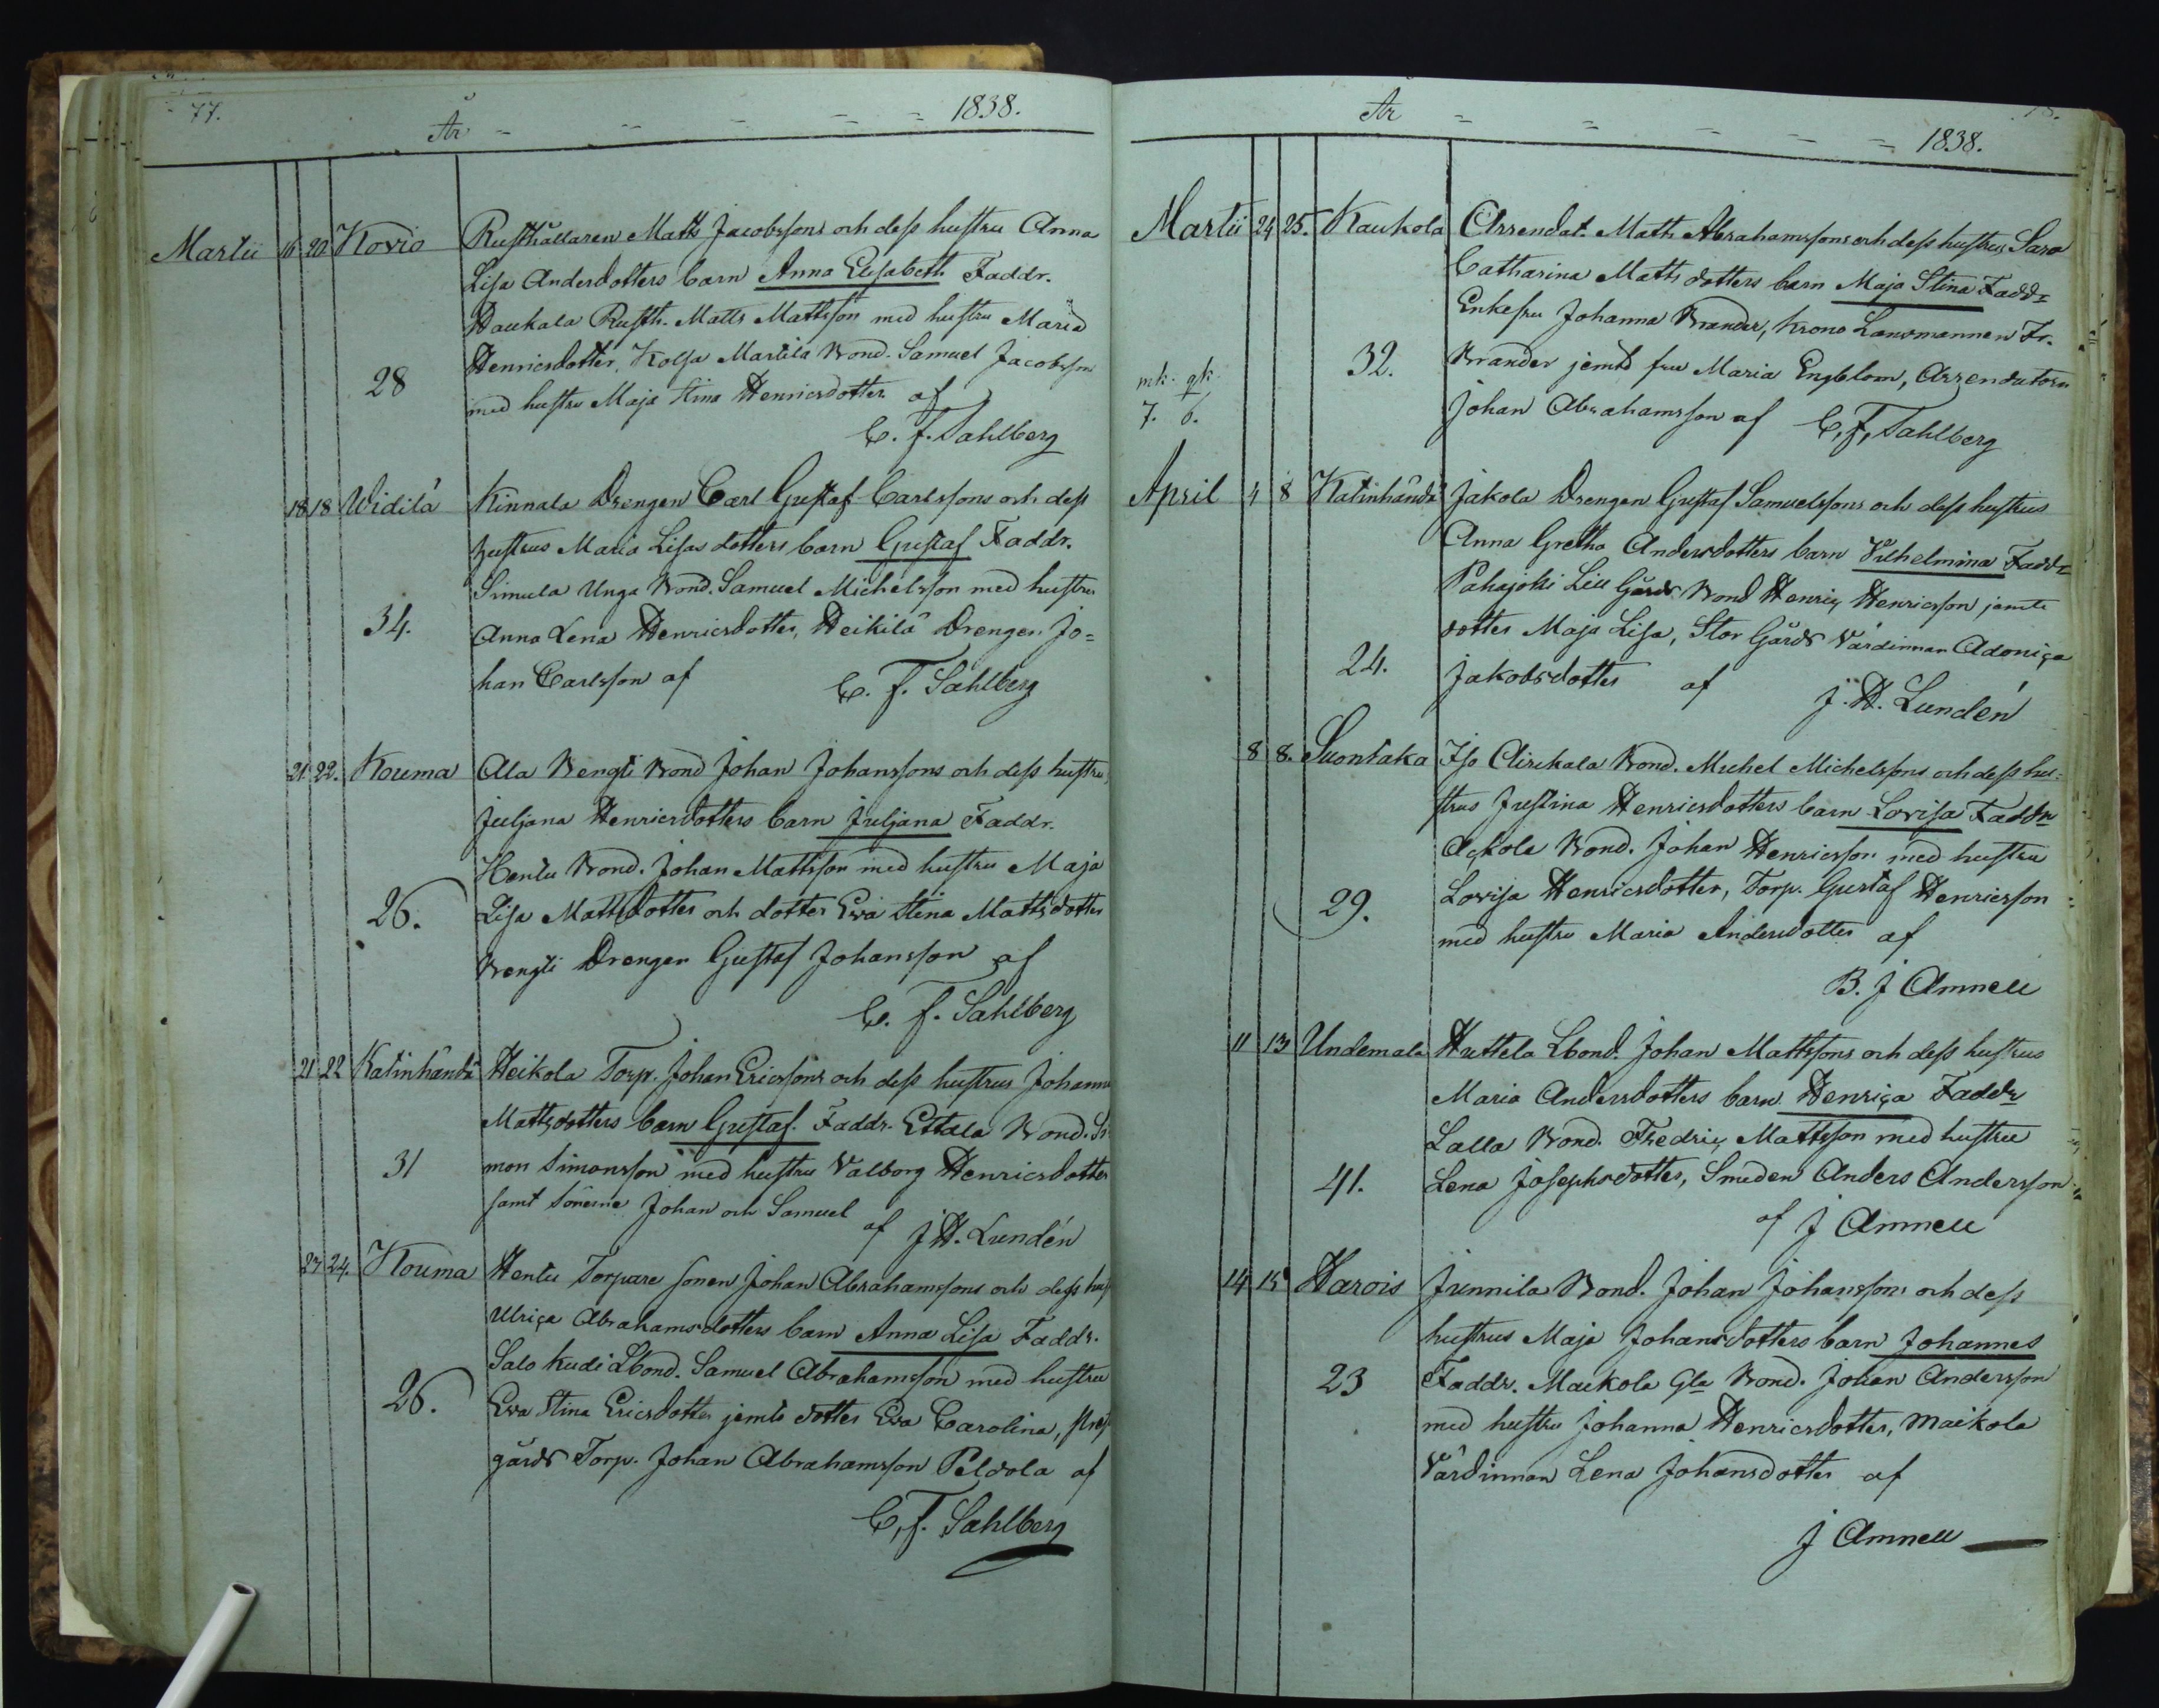 77.
År - - - - = 1838.
Martii 16 20 Kovio Rusthållaren Matts Jacobssons och dess hustru Anna
Lisa Andersdotters barn Anna Elisabeth Faddr.
Haukala Rusth. Matts Mattsson med hustru Maria
Henricsdotter, Kolsa Martila Bond. Samuel Jacobsson
28 med hustru Maja Stina Henricsdotter af
C. F. Sahlberg
18 18 Widilä Kinnala Drengen Carl Gustaf Carlssons och dess
hustrus Maria Lisas dotters barn Gustaf Faddr.
Simula Unga Bond. Samuel Michelsson med hustru
34. Anna Lena Henricsdotter, Heikilä Drengen Jo=
han Carlsson af C. F. Sahlberg
21 22. Kouma Ala Bengti Bond Johan Johanssons och dess hustru
Juljana Henricsdotters barn Juljana Faddr.
Hentu Bond. Johan Mattsson med hustru Maja
26. Lisa Mattsdotter och dotter Eva Stina Mattsdotter
Bengti Drengen Gustaf Johansson af
C. F. Sahlberg
21 22 Katinhändä Heikola Torp. Johan Ericssons och dess hustrus Johanna
Mattsdotters barn Gustaf. Faddr. Ettala Bond. Si
31 mon Simonsson med hustru Valborg Henricsdotter
samt Sönerne Johan och Samuel af J H. Lundén
23 24. Kouma Hentu Torpare sonen Johan Abrahamssons och dess hus
Ulrica Abrahamsdotters barn Anna Lisa Faddr.
Salo Kudi Lbond. Samuel Abrahamsson med hustru
26. Eva Stina Ericsdotter jemte dotter Eva Carolina, Prest
gårds Torp. Johan Abrahamsson Peldola af
C, F. Sahlberg
78.
År = = - - = 1838.
Martii 24 25. Kaukola Arrendat. Matts Abrahamssons och dess hustrus Sara
Catharina Mattsdotters barn Maja Stina Faddr
Enkefru Johanna Brander, Krono Länsmannen Fr.
mk. qk. 32. Brander jemte fru Maria Engblom, Arrendatorn
7. 6. Johan Abrahamsson af C, F, Sahlberg
April 4 8 Katinhändä Jakola Drengen Gustaf Samuelssons och dess hustrus
Anna Gretha Andersdotters barn Vilhelmina Faddr
Pahajoki Lill Gårds Bond Henric Henricsson jemte
dotter Maja Lisa, Stor Gårds Värdinnan Adonica
24. Jakobsdotter af J. H. Lundén
8 8. Suontaka Iso Airikala Bond. Michel Michelssons och dess hu=
strus Justina Henricsdotters barn Lovisa Faddr
Ackola Bond. Johan Henricsson med hustru
29. Lovisa Henricsdotter, Torp. Gustaf Henricsson
med hustru Maria Andersdotter af
B. J Amnell
11 13 Undemala Huttela Lbond. Johan Mattssons och dess hustrus
Maria Andersdotters barn Henrica Faddr
Lalla Bond. Fredric Mattsson med hustru
41. Lena Josephsdotter, Smeden Anders Andersson
af J Amnell
14 15 Harois Junnila Bond. Johan Johanssons och dess
hustrus Maja Johansdotters barn Johannes
23 Faddr. Maikola Gla Bond. Johan Andersson
med hustru Johanna Henricsdotter, Maikola
Värdinnan Lena Johansdotter af
J Amnell